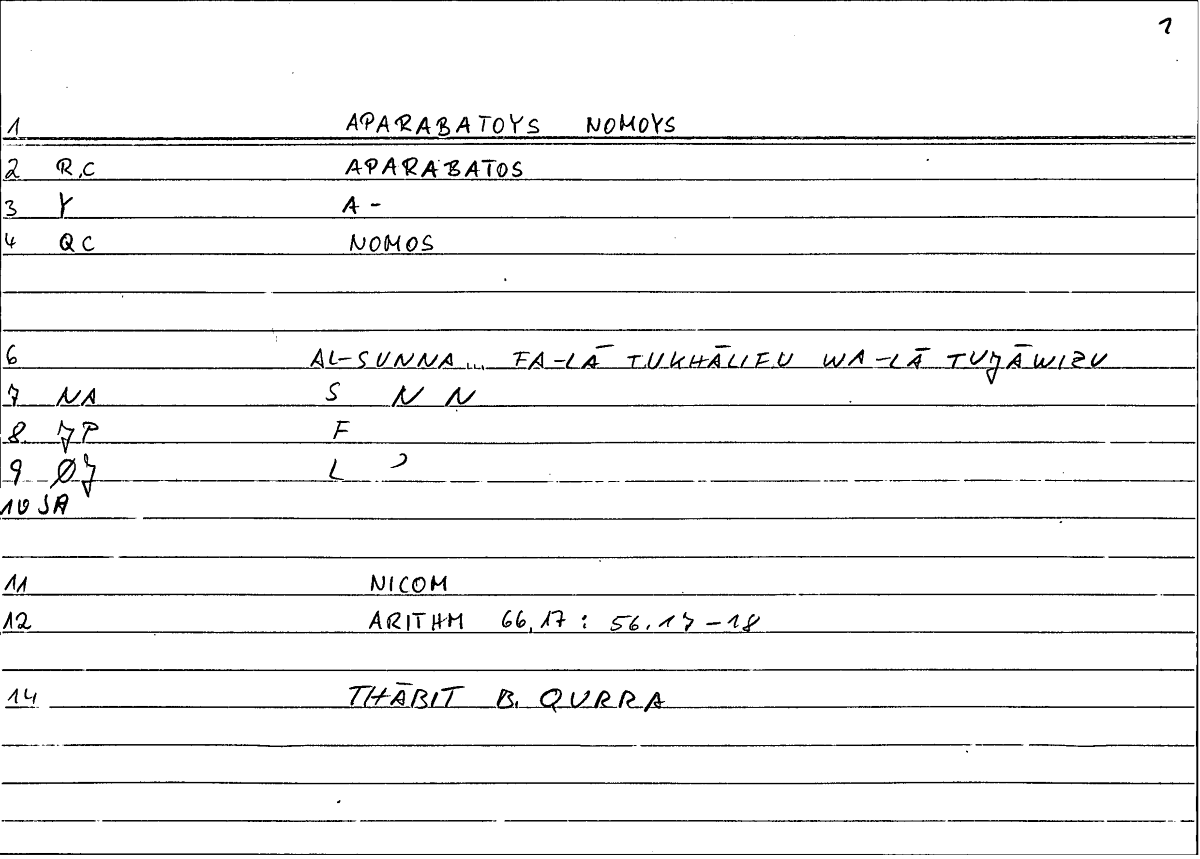 1
1 APARABATOYS NOMOYS
2 R,C APARABATOS
3 Y A-
4 QC NOMOS
6 AL-SUNNA... FA-LĀ TUKHĀLIFU WA-LĀ TUJĀWIZU
7 NA S N N
8 JP F
9 ØJ L ʾ
10 JA
11 NICOM
12 ARITHM 66,17 : 56.17-18
14 THĀBIT B. QURRA